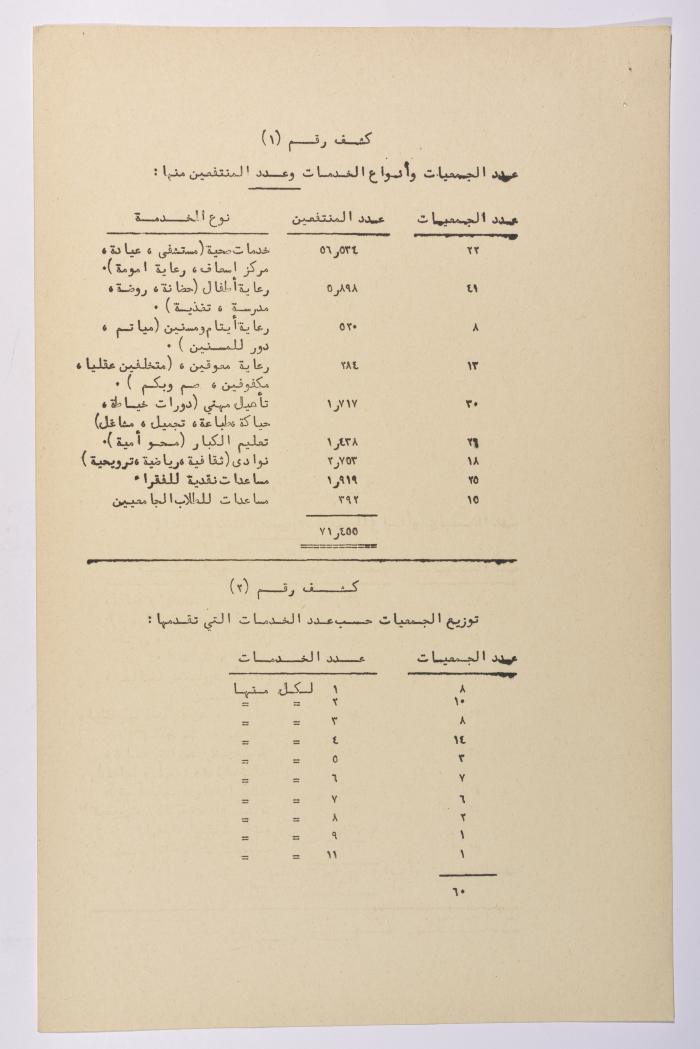 كشف رقم (١)
عدد الجمعيات وأنواع الخدمات وعدد المنتفعين منها :
عدد الجمعيات عدد المنتفعين نوع الخدمة
٢٢ ٥٦,٥٣٤ خدمات صحية (مستشفى ، عيادة ،
مركز اسعاف ، رعاية امومة) .
٤١ ٥,٨٩٨ رعاية أطفال (حضانة ، روضة ،
مدرسة ، تغذية) .
٨ ٥٢٠ رعاية أيتام ومسنين (مياتم ،
دور للمسنين) .
١٣ ٢٨٤ رعاية معوقين ، (متخلفين عقليا ،
مكفوفين ، صم وبكم) .
٣٠ ١,٧١٧ تأهيل مهني (دورات خياطة ،
حياكة ، طباعة ، تجميل ، مشاغل)
٢٦ ١,٤٣٨ تعليم الكبار (محو أمية) .
١٨ ٢,٧٥٣ نوادى (ثقافية ، رياضية ، ترويحية)
٢٥ ١,٩١٩ مساعدات نقدية للفقراء
١٥ ٣٩٢ مساعدات للطلاب الجامعيين
٧١,٤٥٥
كشف رقم (٢)
توزيع الجمعيات حسب عدد الخدمات التي تقدمها :
عدد الجمعيات عدد الخدمات
٨ ١ لكل منها
١٠ ٢ = =
٨ ٣ = =
١٤ ٤ = =
٣ ٥ = =
٧ ٦ = =
٦ ٧ = =
٢ ٨ = =
١ ٩ = =
١ ١١ = =
٦٠